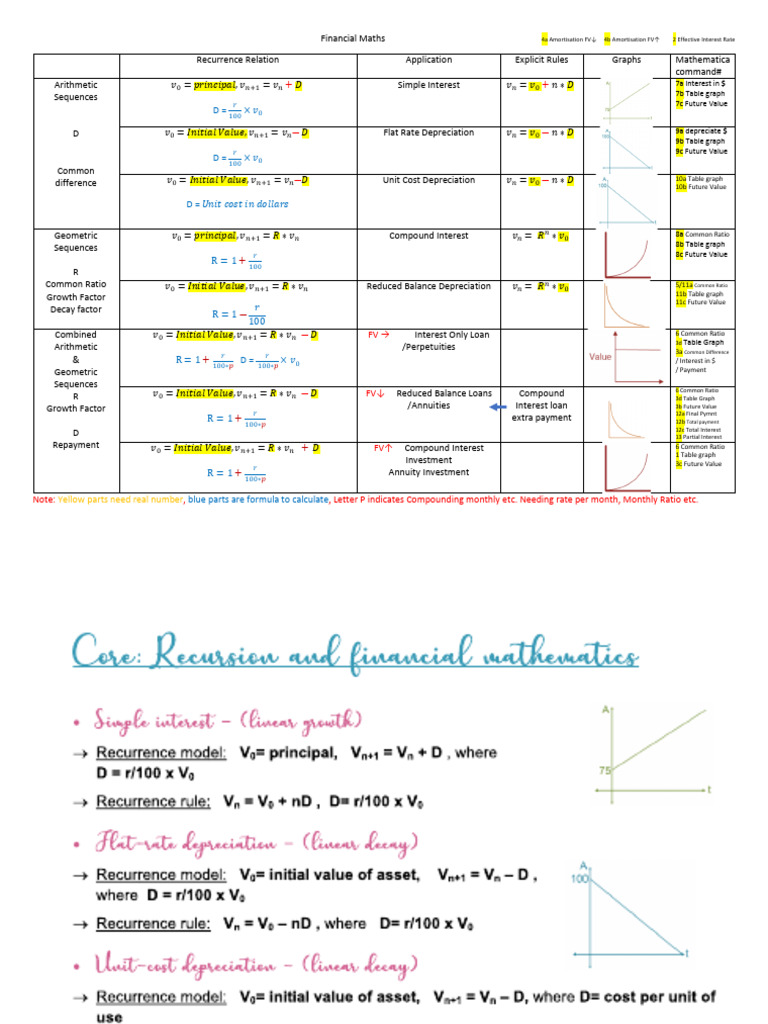 Financial Maths
4a Amortisation FV↓ 4b Amortisation FV↑ 2 Effective Interest Rate
Recurrence Relation Application Explicit Rules Graphs Mathematica command#
Arithmetic
Sequences
D
Common
difference
v₀ = principal, vₙ₊₁ = vₙ + D
D = r/100 × v₀
Simple Interest
vₙ = v₀ + n ∗ D
7a Interest in $
7b Table graph
7c Future Value
v₀ = Initial Value, vₙ₊₁ = vₙ − D
D = r/100 × v₀
Flat Rate Depreciation
vₙ = v₀ − n ∗ D
A
100
9a depreciate $
9b Table graph
9c Future Value
v₀ = Initial Value, vₙ₊₁ = vₙ − D
D = Unit cost in dollars
Unit Cost Depreciation
vₙ = v₀ − n ∗ D
A
100
10a Table graph
10b Future Value
Geometric
Sequences
R
Common Ratio
Growth Factor
Decay factor
v₀ = principal, vₙ₊₁ = R ∗ vₙ
R = 1 + r/100
Compound Interest
vₙ = Rⁿ ∗ v₀
8a Common Ratio
8b Table graph
8c Future Value
v₀ = Initial Value, vₙ₊₁ = R ∗ vₙ
R = 1 − r/100
Reduced Balance Depreciation
vₙ = Rⁿ ∗ v₀
5/11a Common Ratio
11b Table graph
11c Future Value
Combined
Arithmetic
&
Geometric
Sequences
R
Growth Factor
D
Repayment
v₀ = Initial Value, vₙ₊₁ = R ∗ vₙ − D
R = 1 + r/100∗p D = r/100∗p × v₀
FV → Interest Only Loan
/Perpetuities
Value
6 Common Ratio
3d Table Graph
3a Common Difference
/ Interest in $
/ Payment
v₀ = Initial Value, vₙ₊₁ = R ∗ vₙ − D
R = 1 + r/100∗p
FV↓ Reduced Balance Loans
/Annuities
Compound
Interest loan
extra payment
6 Common Ratio
3d Table Graph
3b Future Value
12a Final Pymnt
12b Total payment
12c Total Interest
13 Partial Interest
v₀ = Initial Value, vₙ₊₁ = R ∗ vₙ + D
R = 1 + r/100∗p
FV↑ Compound Interest
Investment
Annuity Investment
6 Common Ratio
1 Table graph
3c Future Value
Note: Yellow parts need real number, blue parts are formula to calculate, Letter P indicates Compounding monthly etc. Needing rate per month, Monthly Ratio etc.
Core: Recursion and financial mathematics
• Simple interest - (linear growth)
→ Recurrence model: V₀= principal, Vₙ₊₁ = Vₙ + D , where
D = r/100 x V₀
→ Recurrence rule: Vₙ = V₀ + nD , D= r/100 x V₀
A
75
t
• Flat-rate depreciation - (linear decay)
→ Recurrence model: V₀= initial value of asset, Vₙ₊₁ = Vₙ – D ,
where D = r/100 x V₀
→ Recurrence rule: Vₙ = V₀ – nD , where D= r/100 x V₀
A
100
t
• Unit-cost depreciation - (linear decay)
→ Recurrence model: V₀= initial value of asset, Vₙ₊₁ = Vₙ – D, where D= cost per unit of
use